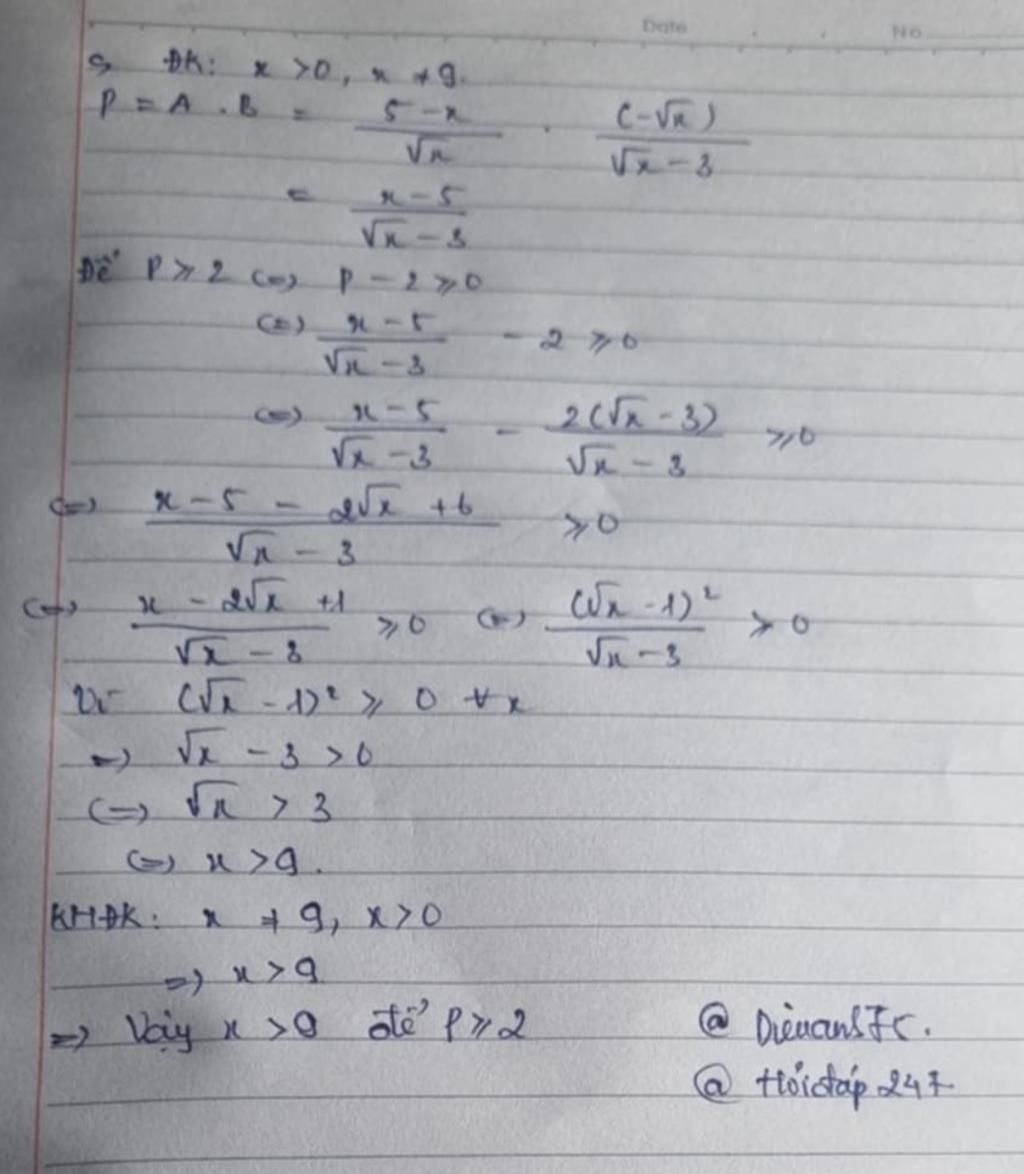 Date No
c, ĐK: x > 0, x ≠ 9.
P = A . B = \frac{5 - x}{\sqrt{x}} . \frac{(-\sqrt{x})}{\sqrt{x} - 3}
= \frac{x - 5}{\sqrt{x} - 3}
Để P ⩾ 2 (=) P - 2 ⩾ 0
(=) \frac{x - 5}{\sqrt{x} - 3} - 2 ⩾ 0
(=) \frac{x - 5}{\sqrt{x} - 3} - \frac{2(\sqrt{x} - 3)}{\sqrt{x} - 3} ⩾ 0
(=) \frac{x - 5 - 2\sqrt{x} + 6}{\sqrt{x} - 3} ⩾ 0
(=) \frac{x - 2\sqrt{x} + 1}{\sqrt{x} - 3} ⩾ 0 (=) \frac{(\sqrt{x} - 1)²}{\sqrt{x} - 3} ⩾ 0
Vì (\sqrt{x} - 1)² ⩾ 0 ∀ x
=) \sqrt{x} - 3 > 0
(=) \sqrt{x} > 3
(=) x > 9.
KHĐK: x ≠ 9, x > 0
=) x > 9
=) Vậy x > 9 để P ⩾ 2 @
@ Hỏi đáp 247